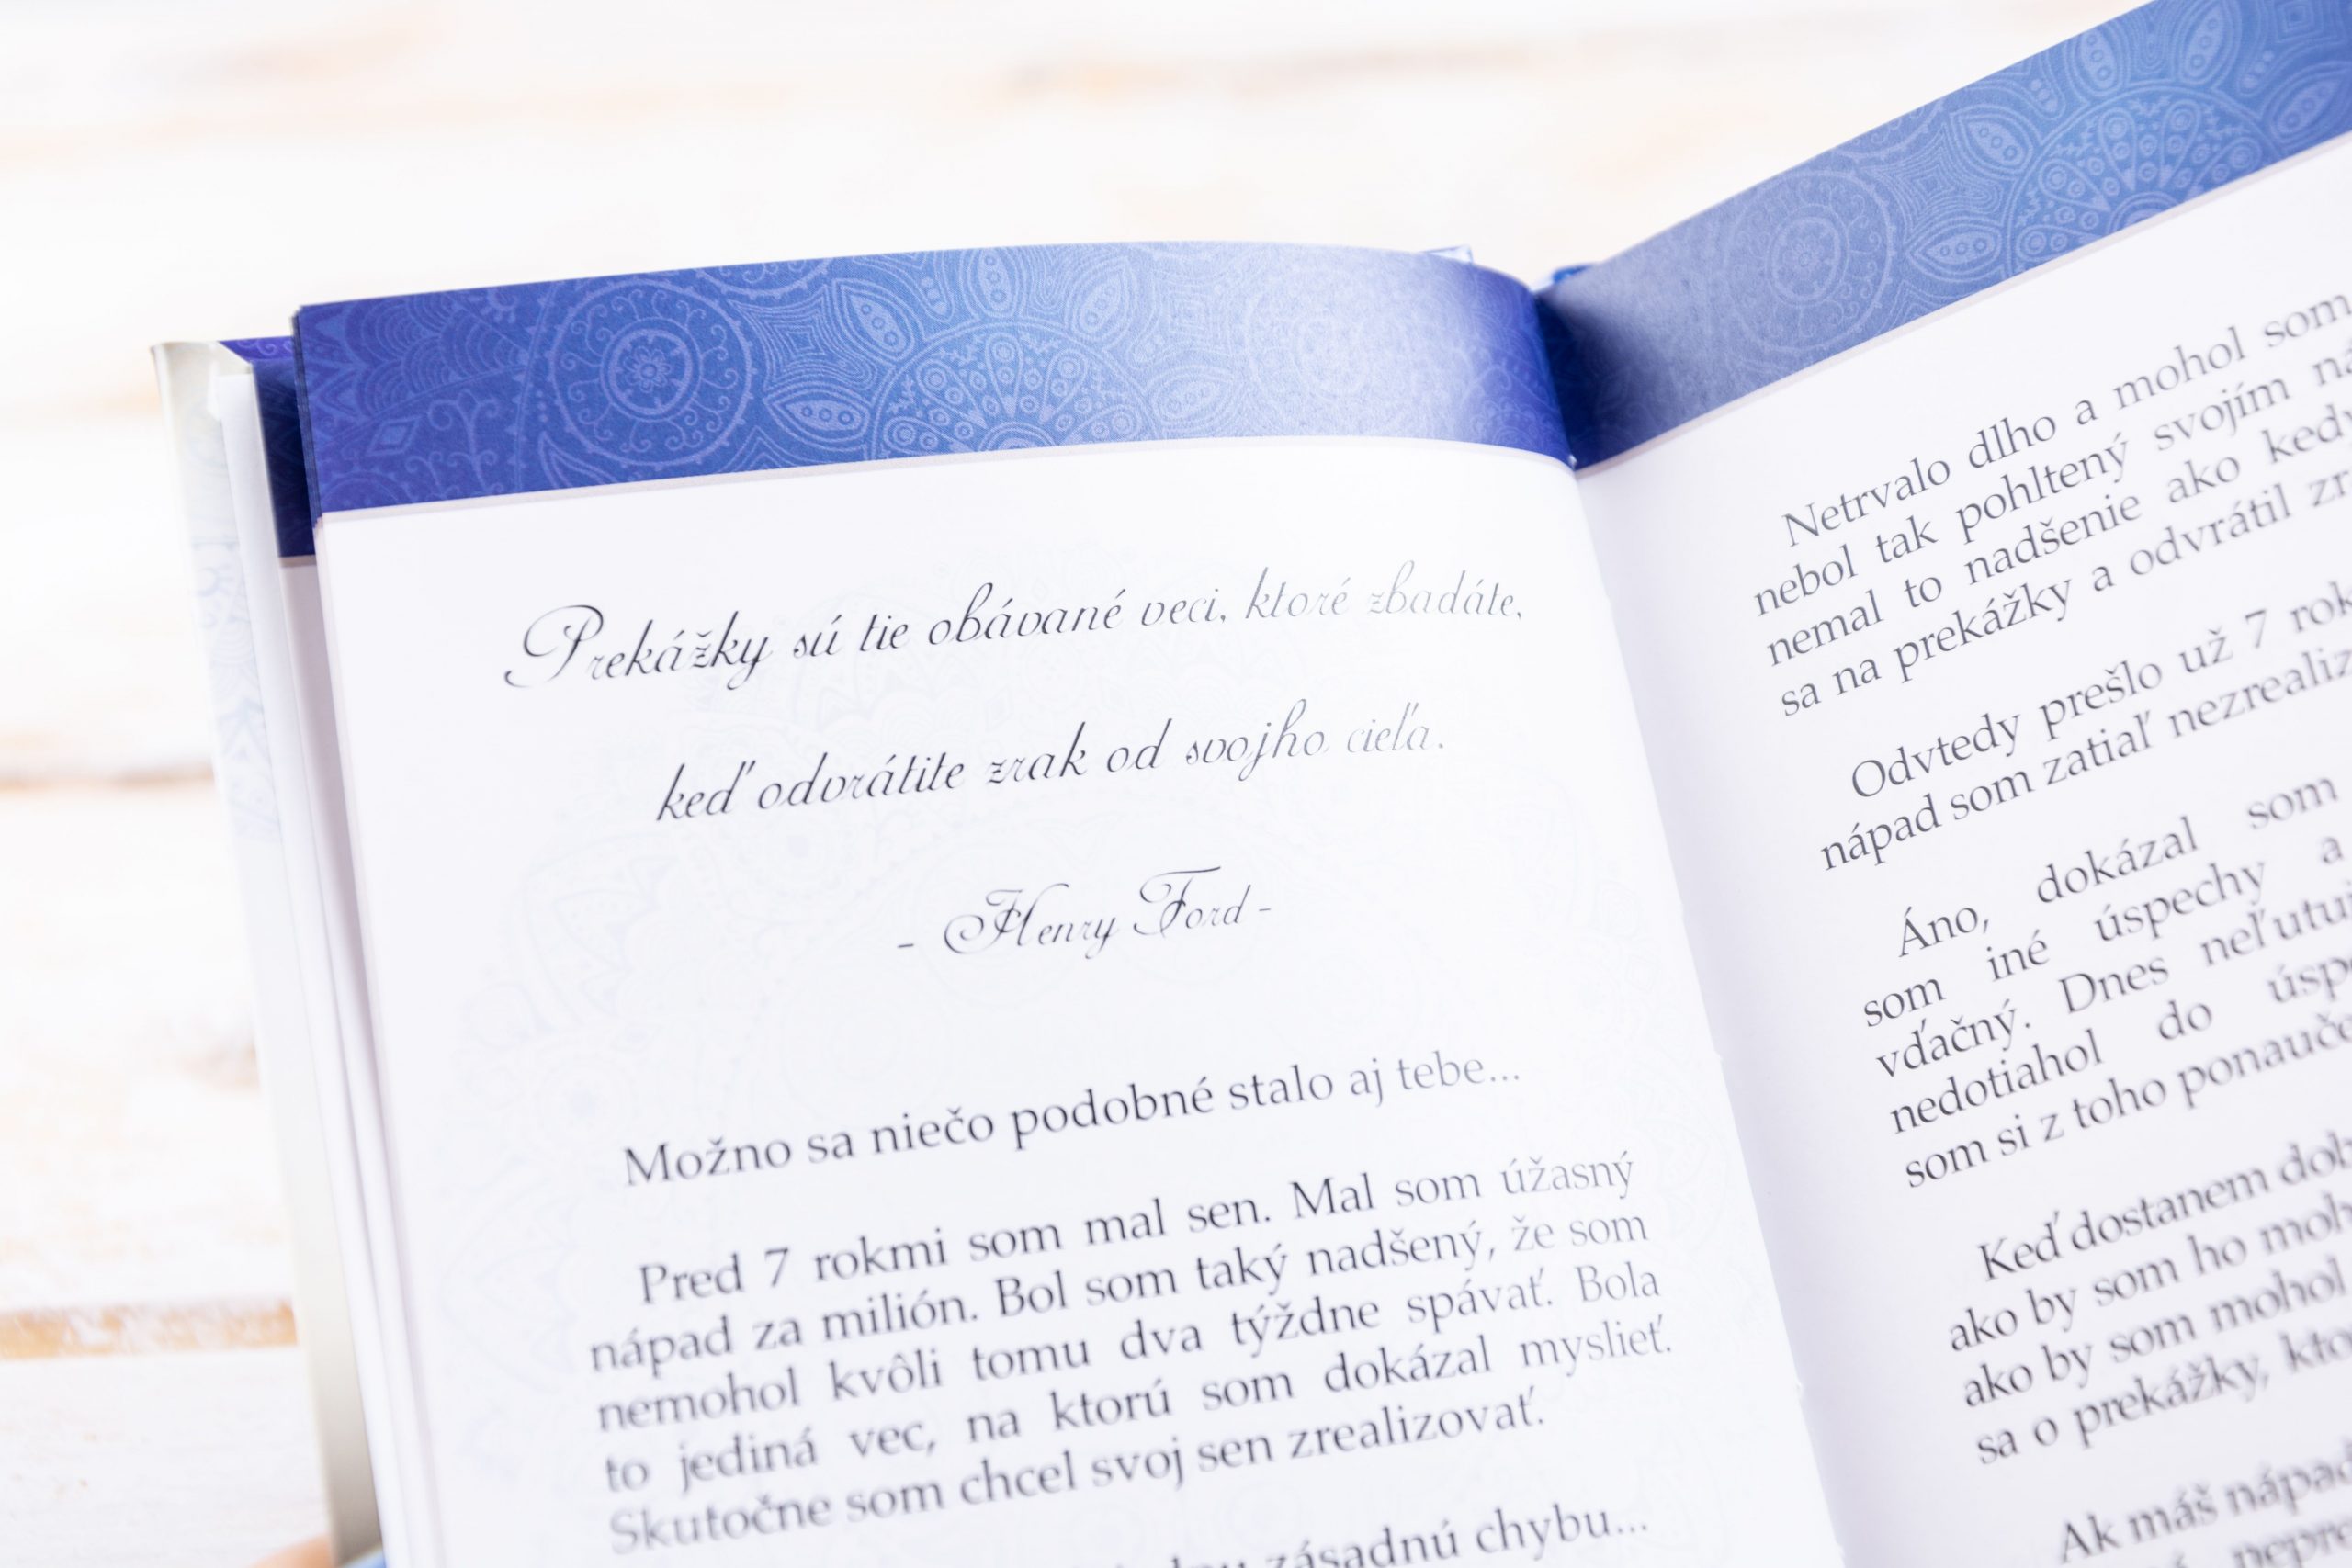 Prekážky sú tie obávané veci, ktoré zbadáte,
keď odvrátite zrak od svojho cieľa.
- Henry Ford -
Možno sa niečo podobné stalo aj tebe...
Pred 7 rokmi som mal sen. Mal som úžasný
nápad za milión. Bol som taký nadšený, že som
nemohol kvôli tomu dva týždne spávať. Bola
to jediná vec, na ktorú som dokázal myslieť.
Skutočne som chcel svoj sen zrealizovať.
zásadnú chybu...
Netrvalo dlho a mohol som
nebol tak pohltený svojím
nemal to nadšenie ako
sa na prekážky a odvrátil
Odvtedy prešlo už 7
nápad som zatiaľ
Áno, dokázal som
som iné úspechy a
vďačný. Dnes
nedotiahol do
som si z toho
Keď dostanem
ako by som ho
ako by som mohol
sa o prekážky,
Ak máš